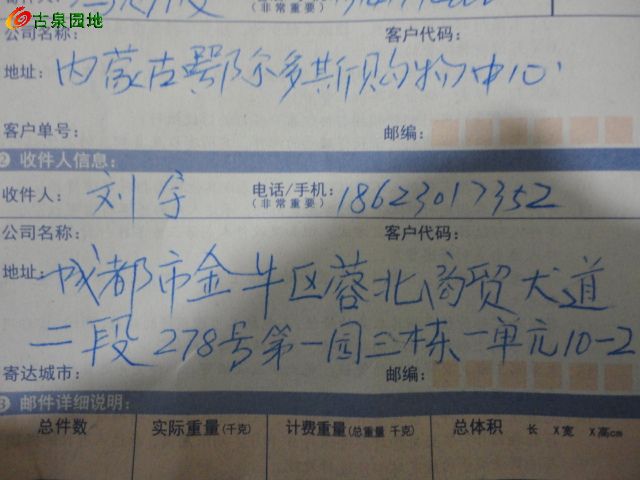 古泉园地
(非常重要)
公司名称: 客户代码:
地址: 内蒙古鄂尔多斯购物中心
客户单号: 邮编:
❷ 收件人信息:
收件人: 刘宇 电话/手机: 18623017352
(非常重要)
公司名称: 客户代码:
地址: 成都市金牛区蓉北商贸大道
二段278号第一园三栋一单元10-2
寄达城市: 邮编:
❸ 邮件详细说明:
总件数 实际重量(千克) 计费重量(总重量 千克) 总体积 长 X宽 X高cm